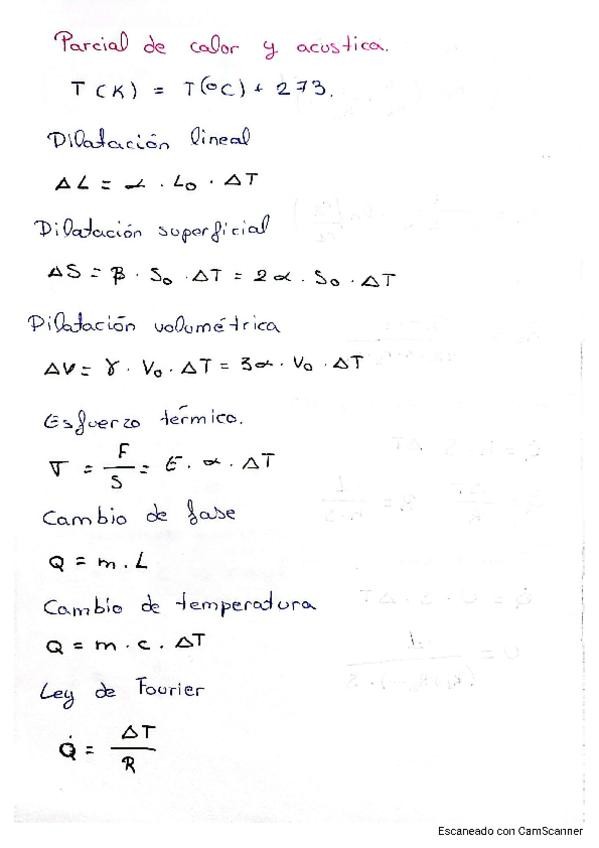 Parcial de calor y acustica.
T(K) = T(ºC) + 273.
Dilatación lineal
ΔL = α . L₀ . ΔT
Dilatación superficial
ΔS = β . S₀ . ΔT = 2α . S₀ . ΔT
Dilatación volumétrica
ΔV = γ . V₀ . ΔT = 3α . V₀ . ΔT
Esfuerzo térmico.
σ = F/S = E . α . ΔT
Cambio de fase
Q = m . L
Cambio de temperatura
Q = m . c . ΔT
Ley de Fourier
Q̇ = ΔT/R
Escaneado con CamScanner